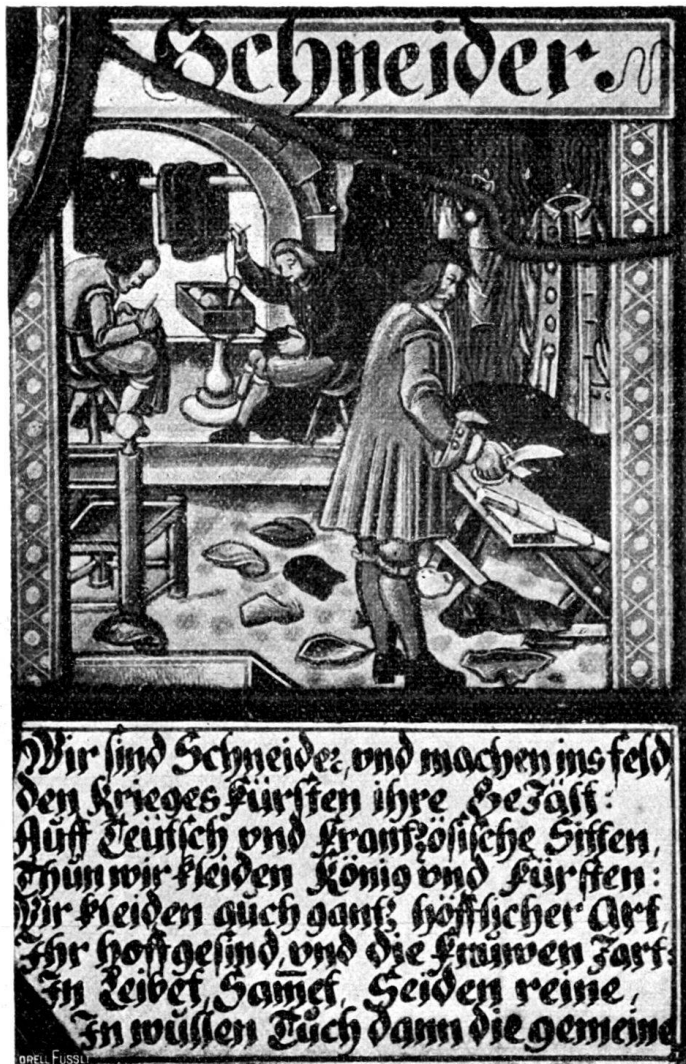 Schneider.
Wir sind Schneider, vnd machen ins feld,
den Krieges fürsten ihre GeZält:
Auff Teütsch vnd frantzösische Sitten,
Thun wir kleiden König vnd fürsten:
Wir kleiden auch gantz höfflicher Art,
Ihr hoffgesind, vnd die frauwen Zart:
In Leibet, Sam̅et, Seiden reine,
In wüllen Tuch dann die gemeine
ORELL FUSSLI